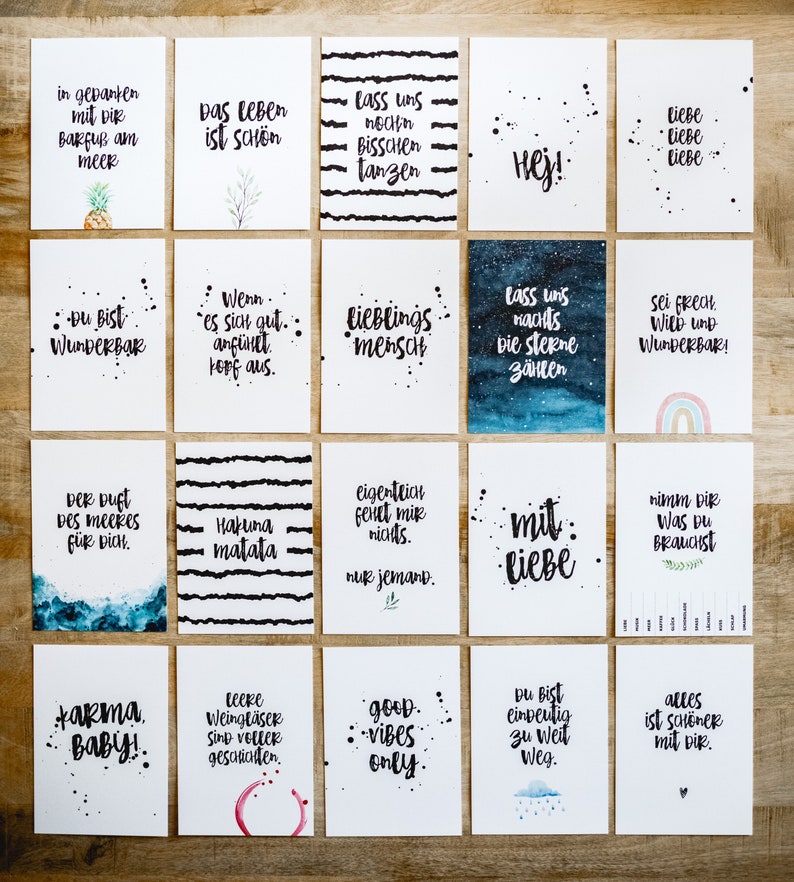 in Gedanken
mit dir
Barfuß am
meer
Das Leben
ist schön
Lass uns
noch'n
Bisschen
tanzen
Hej!
Liebe
Liebe
Liebe
Du bist
Wunderbar
Wenn
es sich gut
anfühlt,
kopf aus.
Lieblings
mensch
Lass uns
nachts
die sterne
zählen
sei frech,
Wild und
Wunderbar!
Der Duft
des meeres
für dich.
Hakuna
matata
eigentlich
fehlt mir
nichts.
nur jemand.
mit
Liebe
nimm dir
Was du
Brauchst
LIEBE
MUSIK
MEER
KAFFEE
GLÜCK
SCHOKOLADE
SPASS
LÄCHELN
KUSS
SCHLAF
UMARMUNG
Karma,
Baby!
Leere
Weingläser
sind voller
geschichten.
good
vibes
only
Du bist
eindeutig
zu weit
weg.
alles
ist schöner
mit dir.